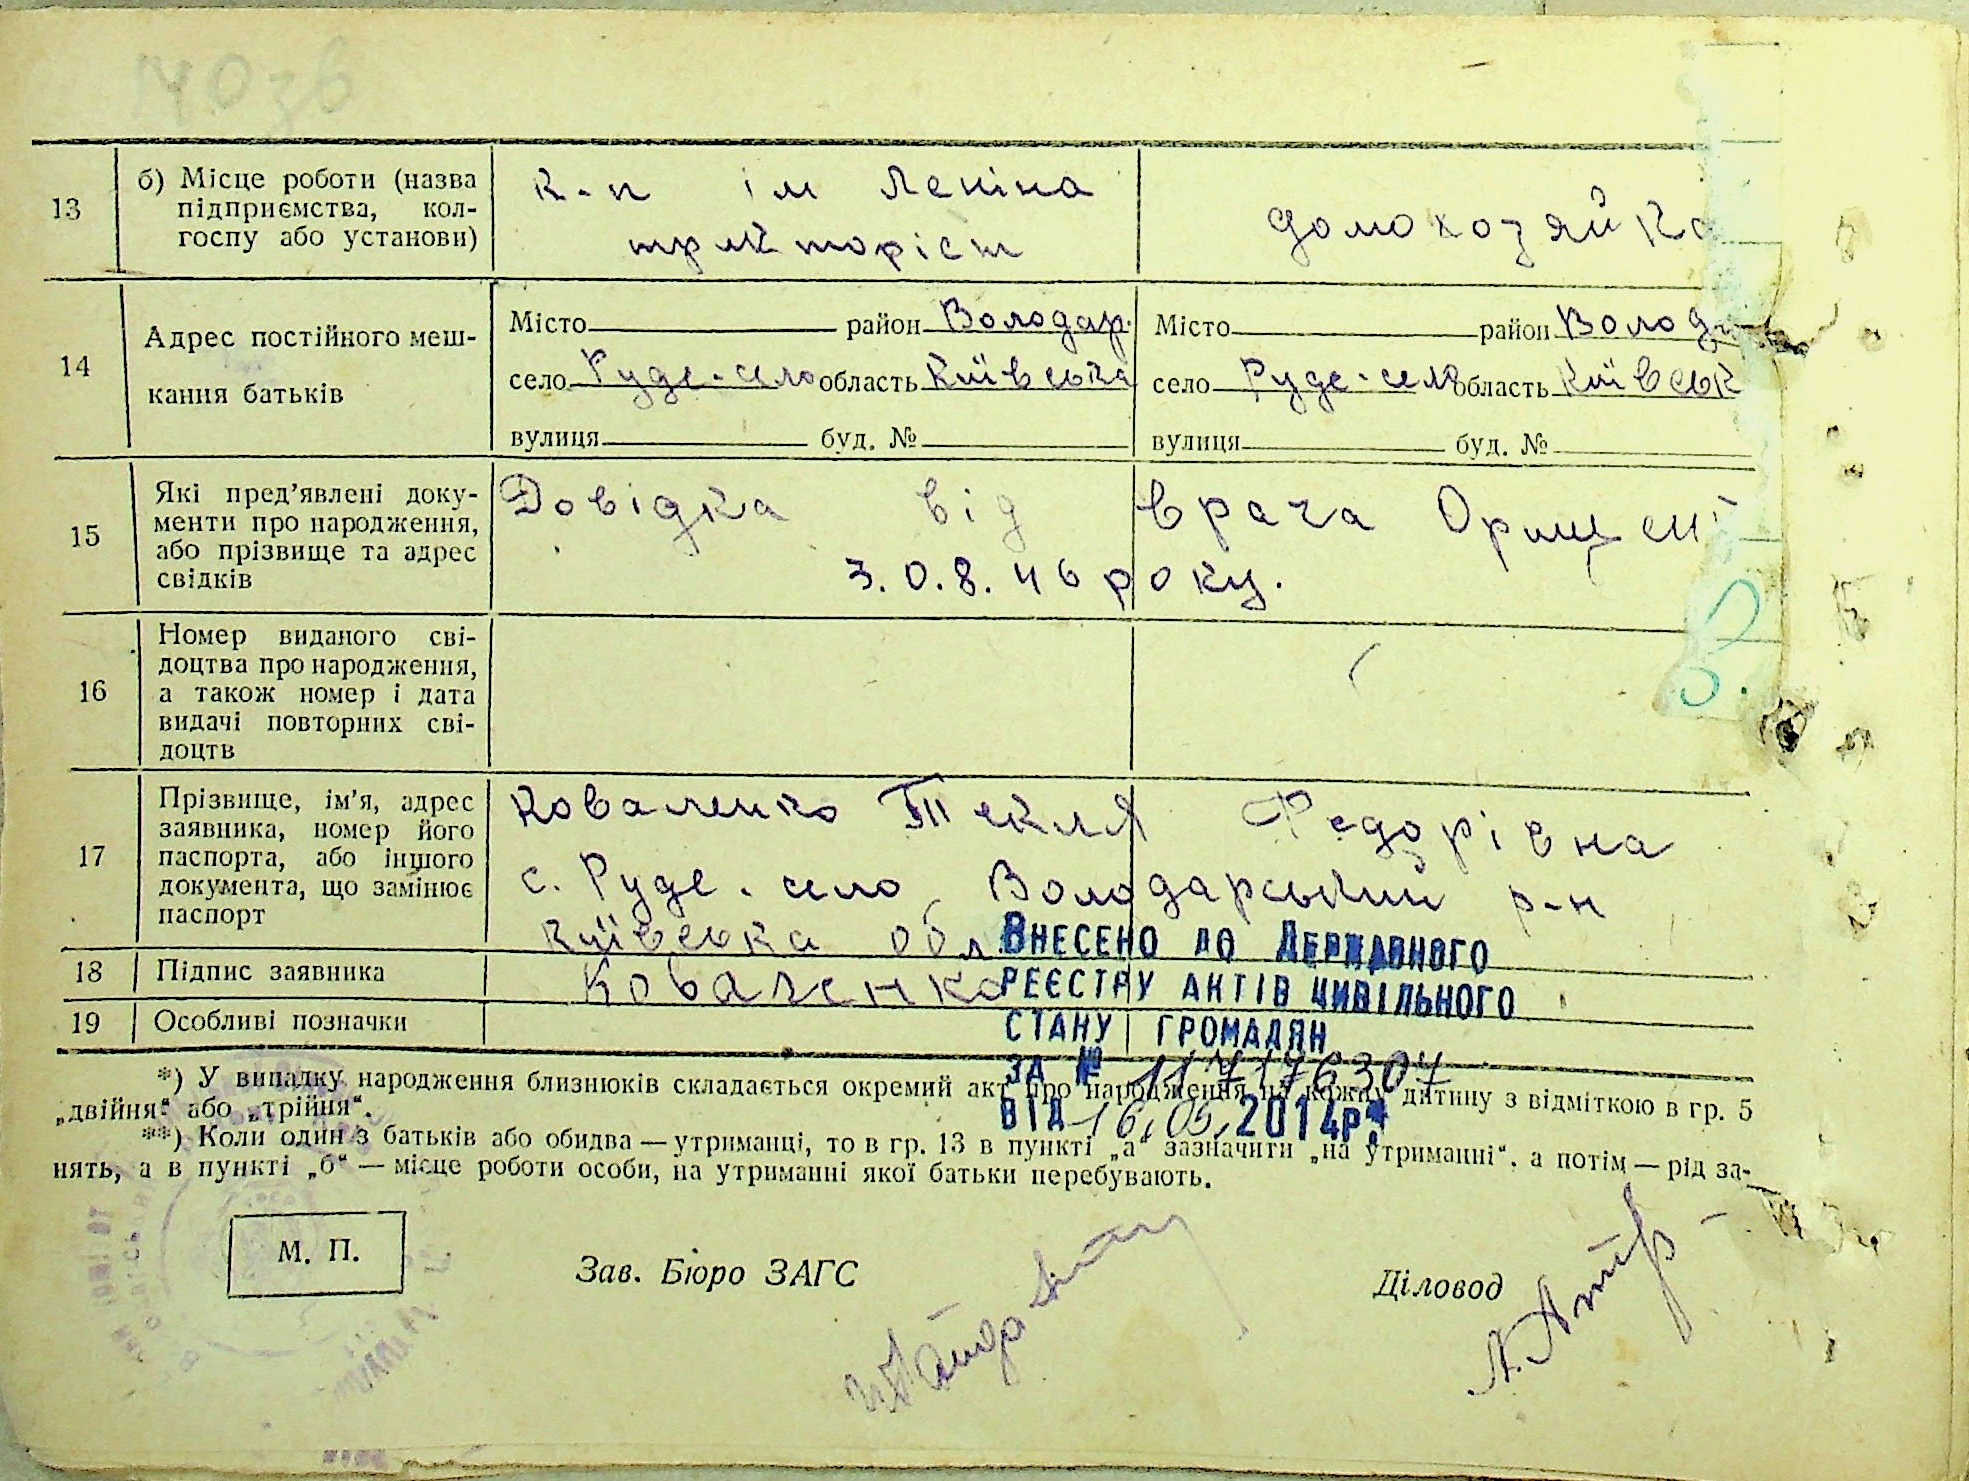 13
б) Місце роботи (назва
підприємства, кол-
госпу або установи)
к-п ім Леніна
тракторіст
домохозяйка
14
Адрес постійного меш-
кання батьків
Місто район Володар.
село Руде-село область Київська
вулиця буд. №
Місто район Волод
село Руде-село область Київськ
вулиця буд. №
15
Які пред’явлені доку-
менти про народження,
або прізвище та адрес
свідків
Довідка від врача
3.0.8.46 року.
16
Номер виданого сві-
доцтва про народження,
а також номер і дата
видачі повторних сві-
доцтв
17
Прізвище, ім’я, адрес
заявника, номер його
паспорта, або іншого
документа, що замінює
паспорт
Коваленко Текля Федорівна
с. Руде-село Володарський р-н
Київська обл.
18
Підпис заявника
Коваленко
19
Особливі позначки
Внесено до Державного
реєстру актів цивільного
стану громадян
за № 117176307
від 16.05.2014р.
*) У випадку народження близнюків складається окремий акт про народження на кожну дитину з відміткою в гр. 5
„двійня“ або „трійня“.
**) Коли один з батьків або обидва — утриманці, то в гр. 13 в пункті „а“ зазначити „на утриманні“, а потім — рід за-
нять, а в пункті „б“ — місце роботи особи, на утриманні якої батьки перебувають.
М. П.
Зав. Бюро ЗАГС
Діловод